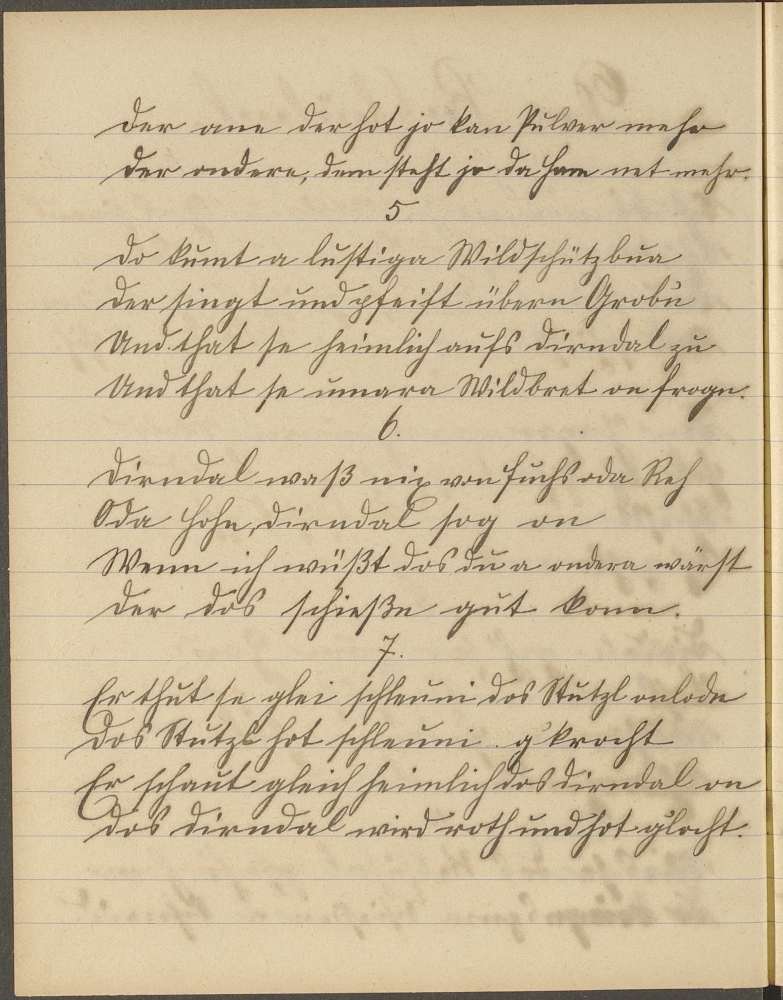 Der ane der hot jo kan Pulver mehr
Der andere, dem steht jo da Ham net mehr.
5
Do kumt a lustiga Wildschützbua
Der singt und pfeift übern Grobn
Und that se heimlich aufs Dirndal zu
Und that se umara Wildbret on frogn.
6.
Dirndal waß nix von Fuchs oda Reh
Oda Hohn, Dirndal sog on
Wenn ich wüßt dos du a ondera wärst
Der dos schießn gut konn.
7.
Er thut se glei schleuni dos Stutzl onlodn
Dos Stutzl hot schleuni g'krocht
Er schaut gleich heimlich dos Dirndal on
Dos Dirndal wird roth und hot g'locht.